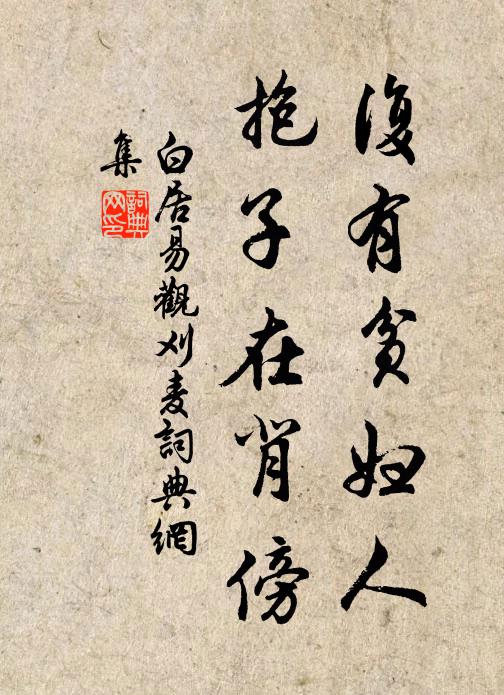 復有貧婦人
抱子在背傍
白居易觀刈麦詞典網
集
詞典
网印